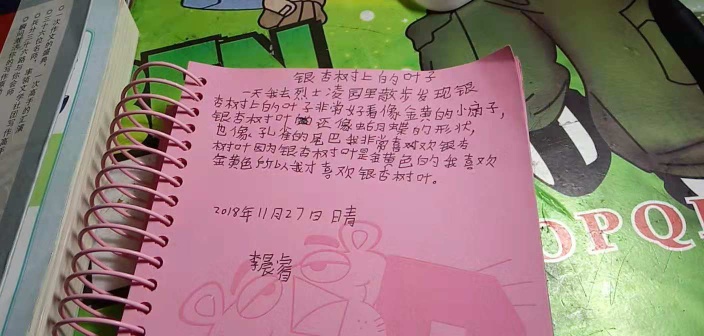 银杏树上的叶子
一天我去烈士凌园里散步发现银
杏树上的叶子非常好看像金黄的小扇子,
银杏树叶还像蝴蝶的形状,
也像孔雀的尾巴我非常喜欢银杏
树叶因为银杏树叶是金黄色的我喜欢
金黄色所以我才喜欢银杏树叶。
2018年11月27日 晴
李晨睿
OPQ
一次作文的盛典,
三十六位名师,
兵分三十六路与你